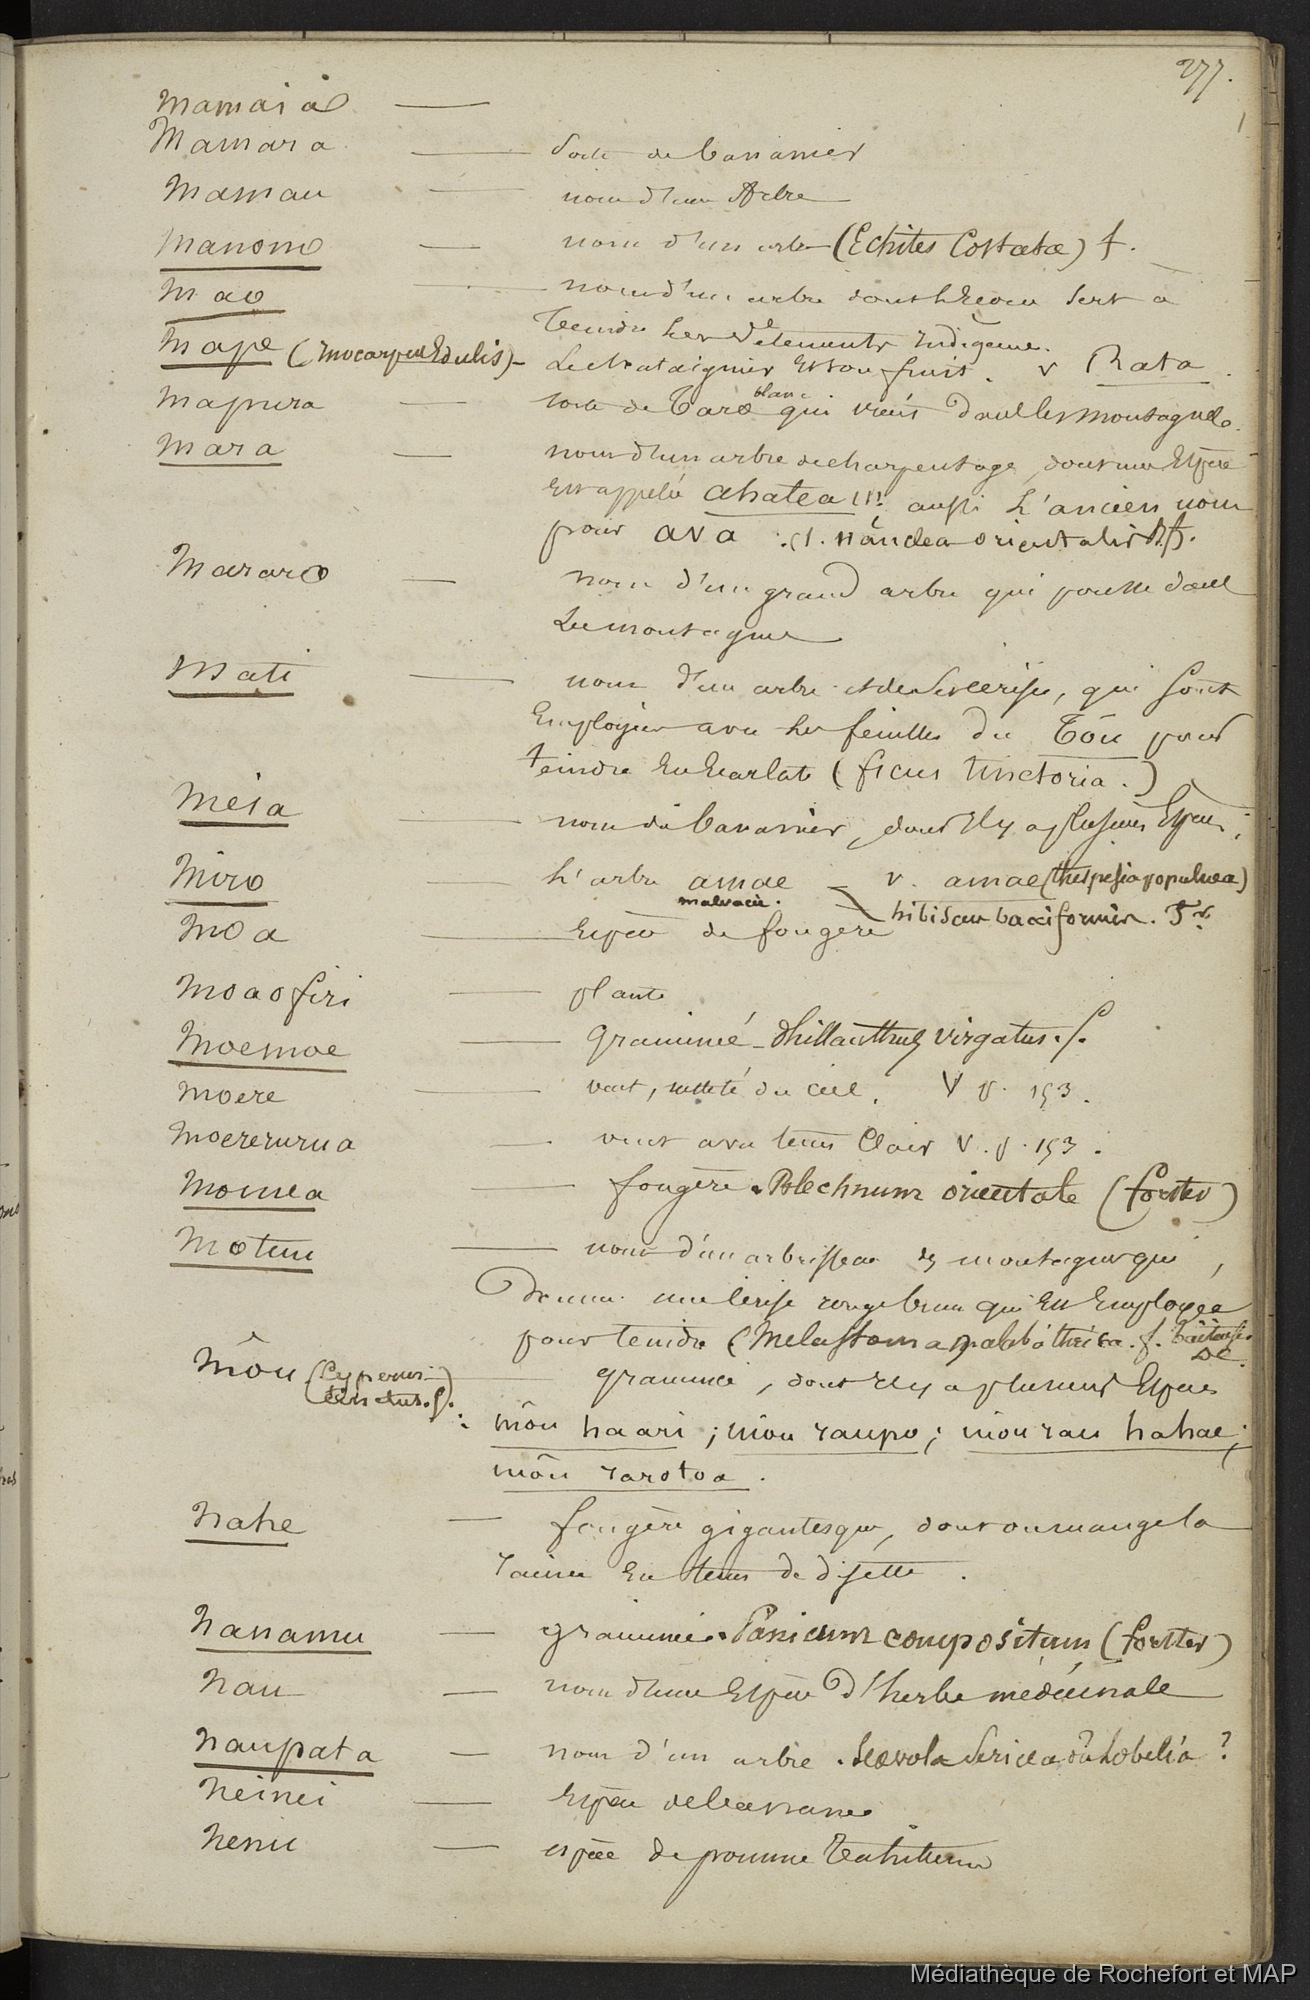 277.
Mamaia —
Mamara — Sorte de bananier
Mamau — nom d'un Arbre
Manono — nom d'un arbre (Echites Costata) f.
Mao — nom d'un arbre dont l'Ecorce sert à
teindre les vêtements indigène.
Mape (Inocarpus Edulis) — Le chataignier et son fruit. v Rata.
Mapura — sorte de Taro blanc qui vient dans les montagnes.
Mara — nom d'un arbre de charpentage, dont une Espèce
est appelée ahatea; aussi L'ancien nom
pour ava . (nauclea orientalis f).
Mararo — nom d'un grand arbre qui pousse dans
Les montagnes
Mati — nom d'un arbre et de ses cerises, qui sont
Employées avec les feuilles du Tôu pour
teindre En Ecarlate (ficus tinctoria.)
Meia — nom du bananier, dont Il y a plusieurs Espèces;
Miro — L'arbre amae — v. amae (thespesia populnea)
malvacée. hibiscus bacciformis. Fr.
Moa — Espèce de fougère
Moaofiri — plante
Moemoe — Graminée - Phillanthus virgatus. f.
Moere — vent, netteté du ciel. V p. 153.
Moererurua — vent avec tems Clair V. p. 153.
Momea — fougère. Blechnum orientale (forster)
Motuu — nom d'un arbrisseau des montagnes qui
Donne une cerise rouge brun qui Est Employée
pour teindre (Melastoma malabathrica. f. Taitensis
DC.
Môu (Cyperus — graminée, dont Il y a plusieurs Espèces
tinctus. f.)
: môu haari; môu raupo; môu rau hahae;
môu rarotoa.
Nahe — fougère gigantesque, dont on mange la
racine En tems de disette.
Nanamu — graminée. Panicum compositum (forster)
Nau — nom d'une Espèce d'herbe médécinale
Naupata — nom d'un arbre. Scævola Sericea ou Lobelia?
Neinei — Espèce de bananes
Nenu — espèce de pomme Tahitienne
Médiathèque de Rochefort et MAP